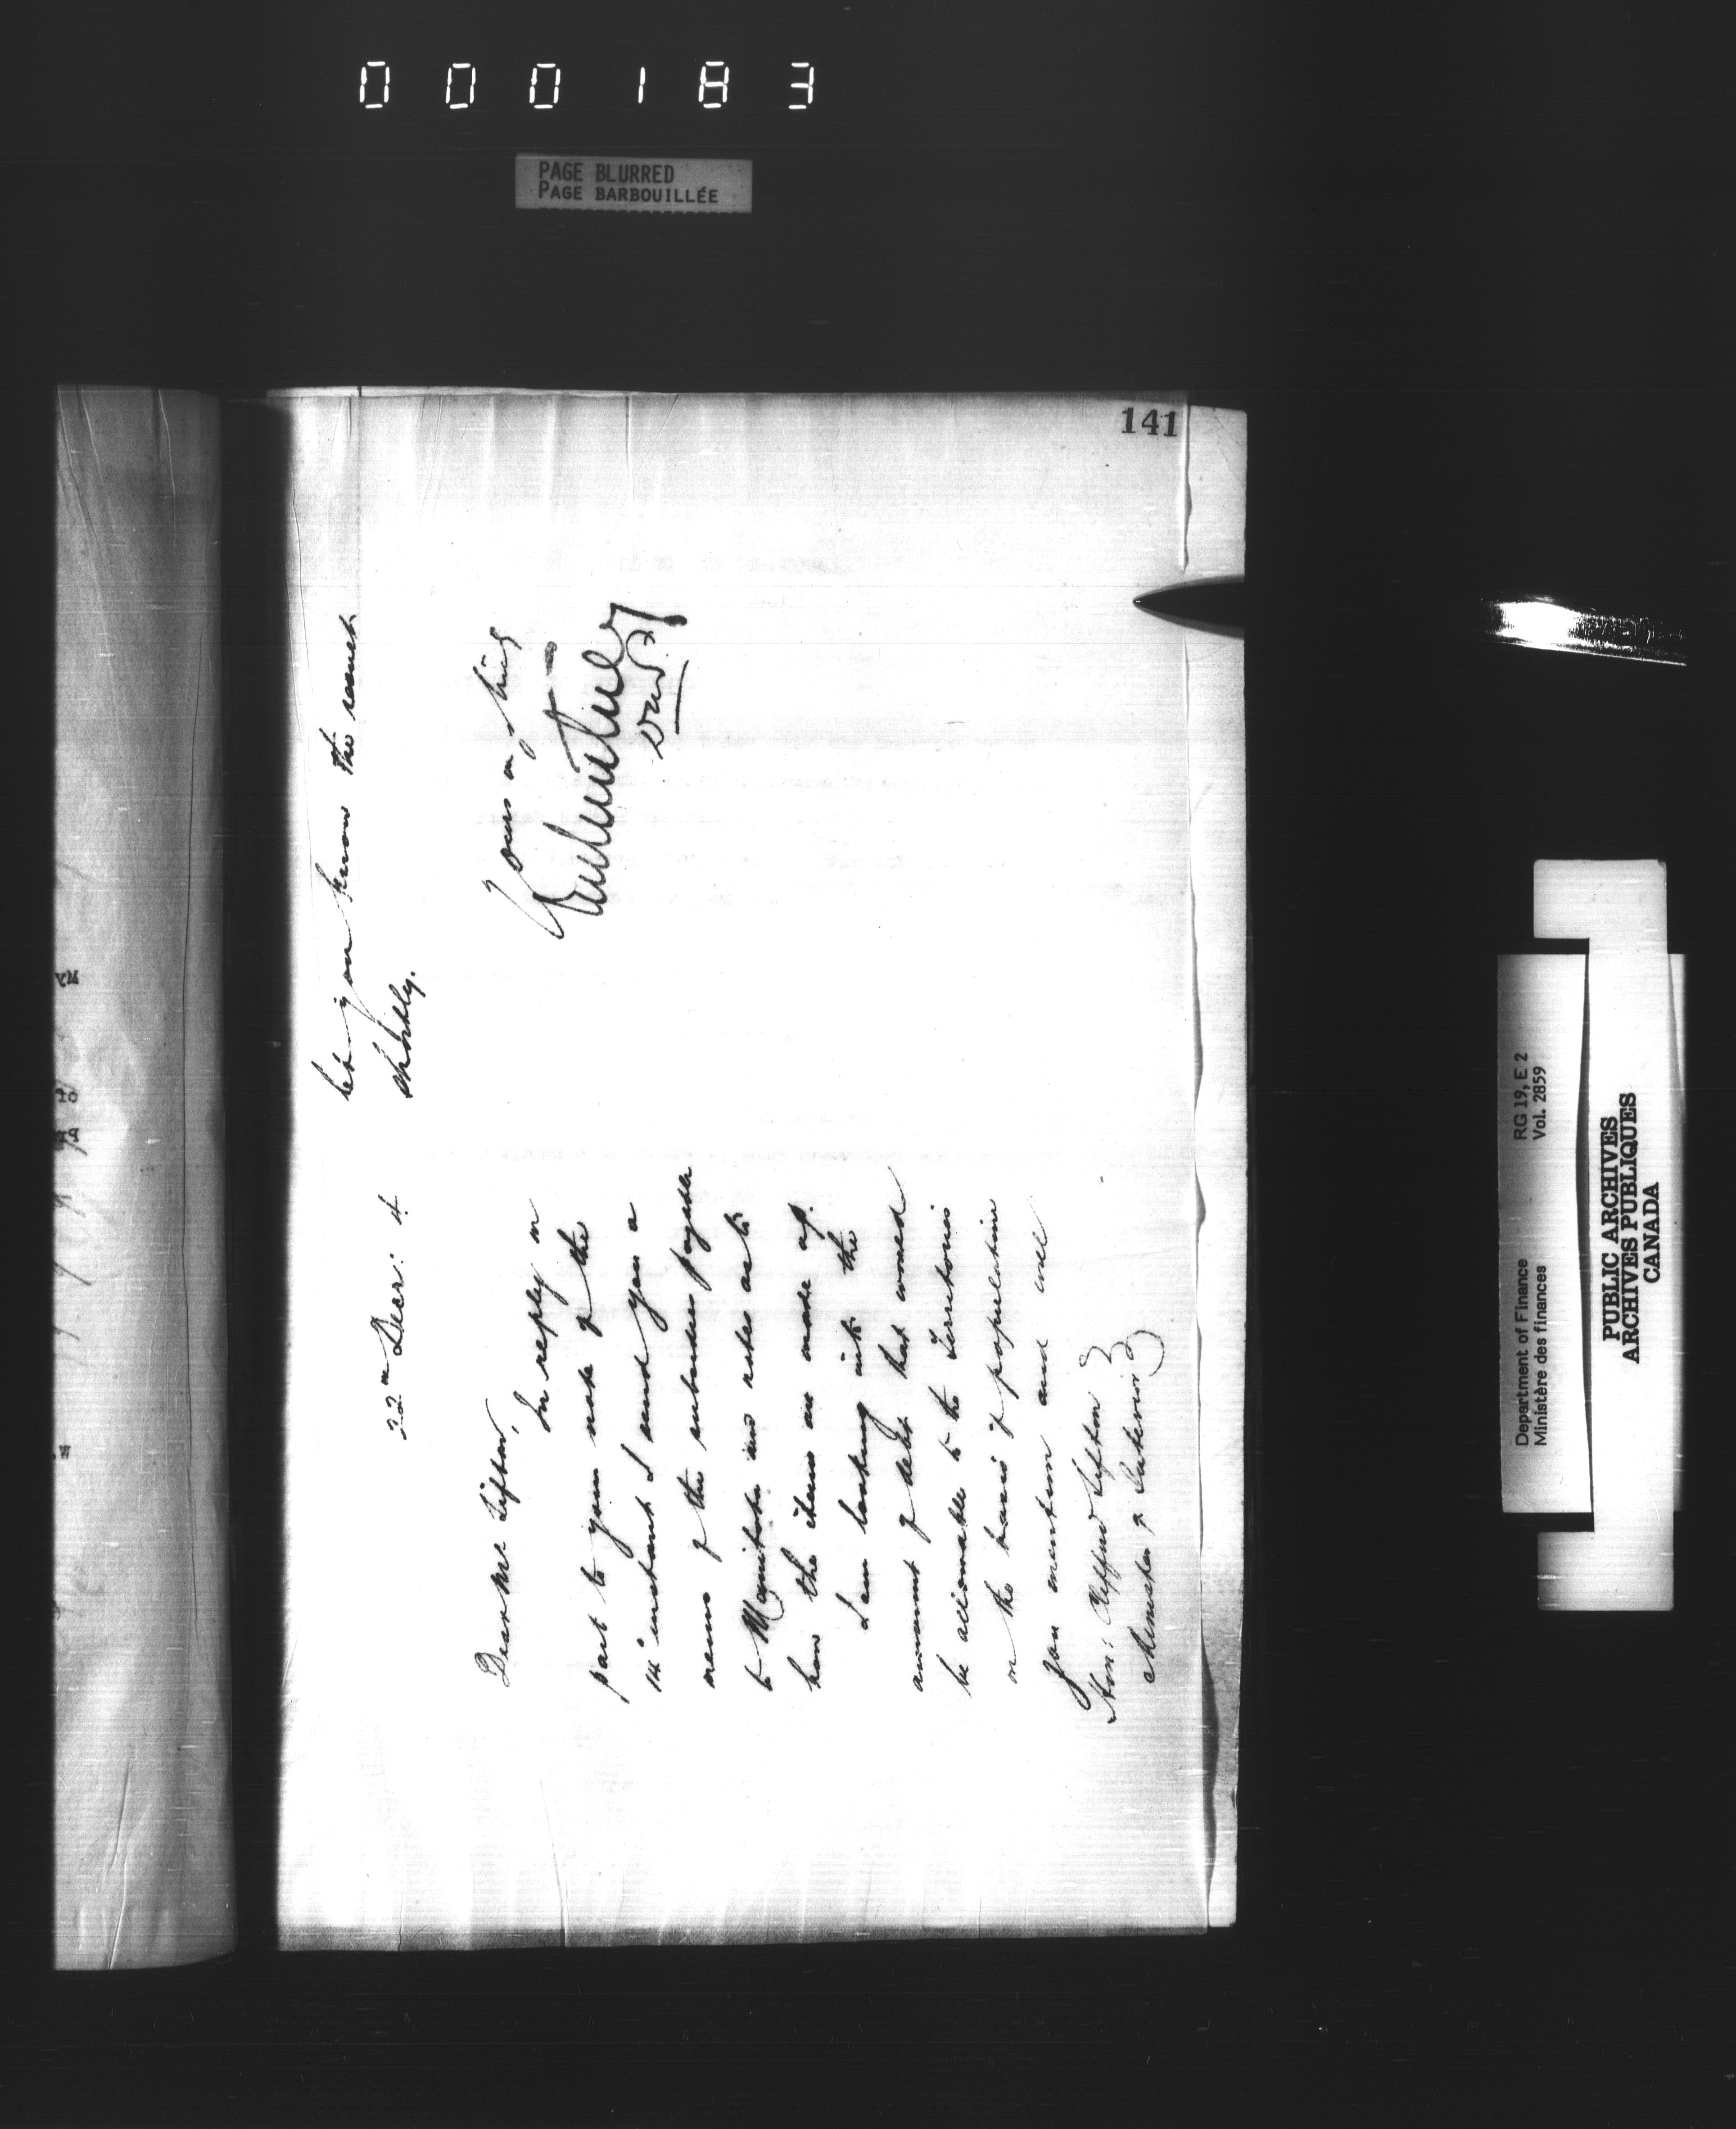 000183
PAGE BLURRED
PAGE BARBOUILLÉE
141
22nd Decr: 4
Dear Mr Sifton,
In reply in
part to your note of the
14th instant I send you a
memo of the subsidies payable
to Manitoba and notes as to
how the items are made up.
I am looking into the
amount of debt that would
be allowable to the Territories
on the basis of population
you mention and will
Hon: Clifford Sifton
Minister of Interior
let you know the result
shortly.
Yours very truly
Department of Finance RG 19, E 2
Ministère des finances Vol. 2859
PUBLIC ARCHIVES
ARCHIVES PUBLIQUES
CANADA